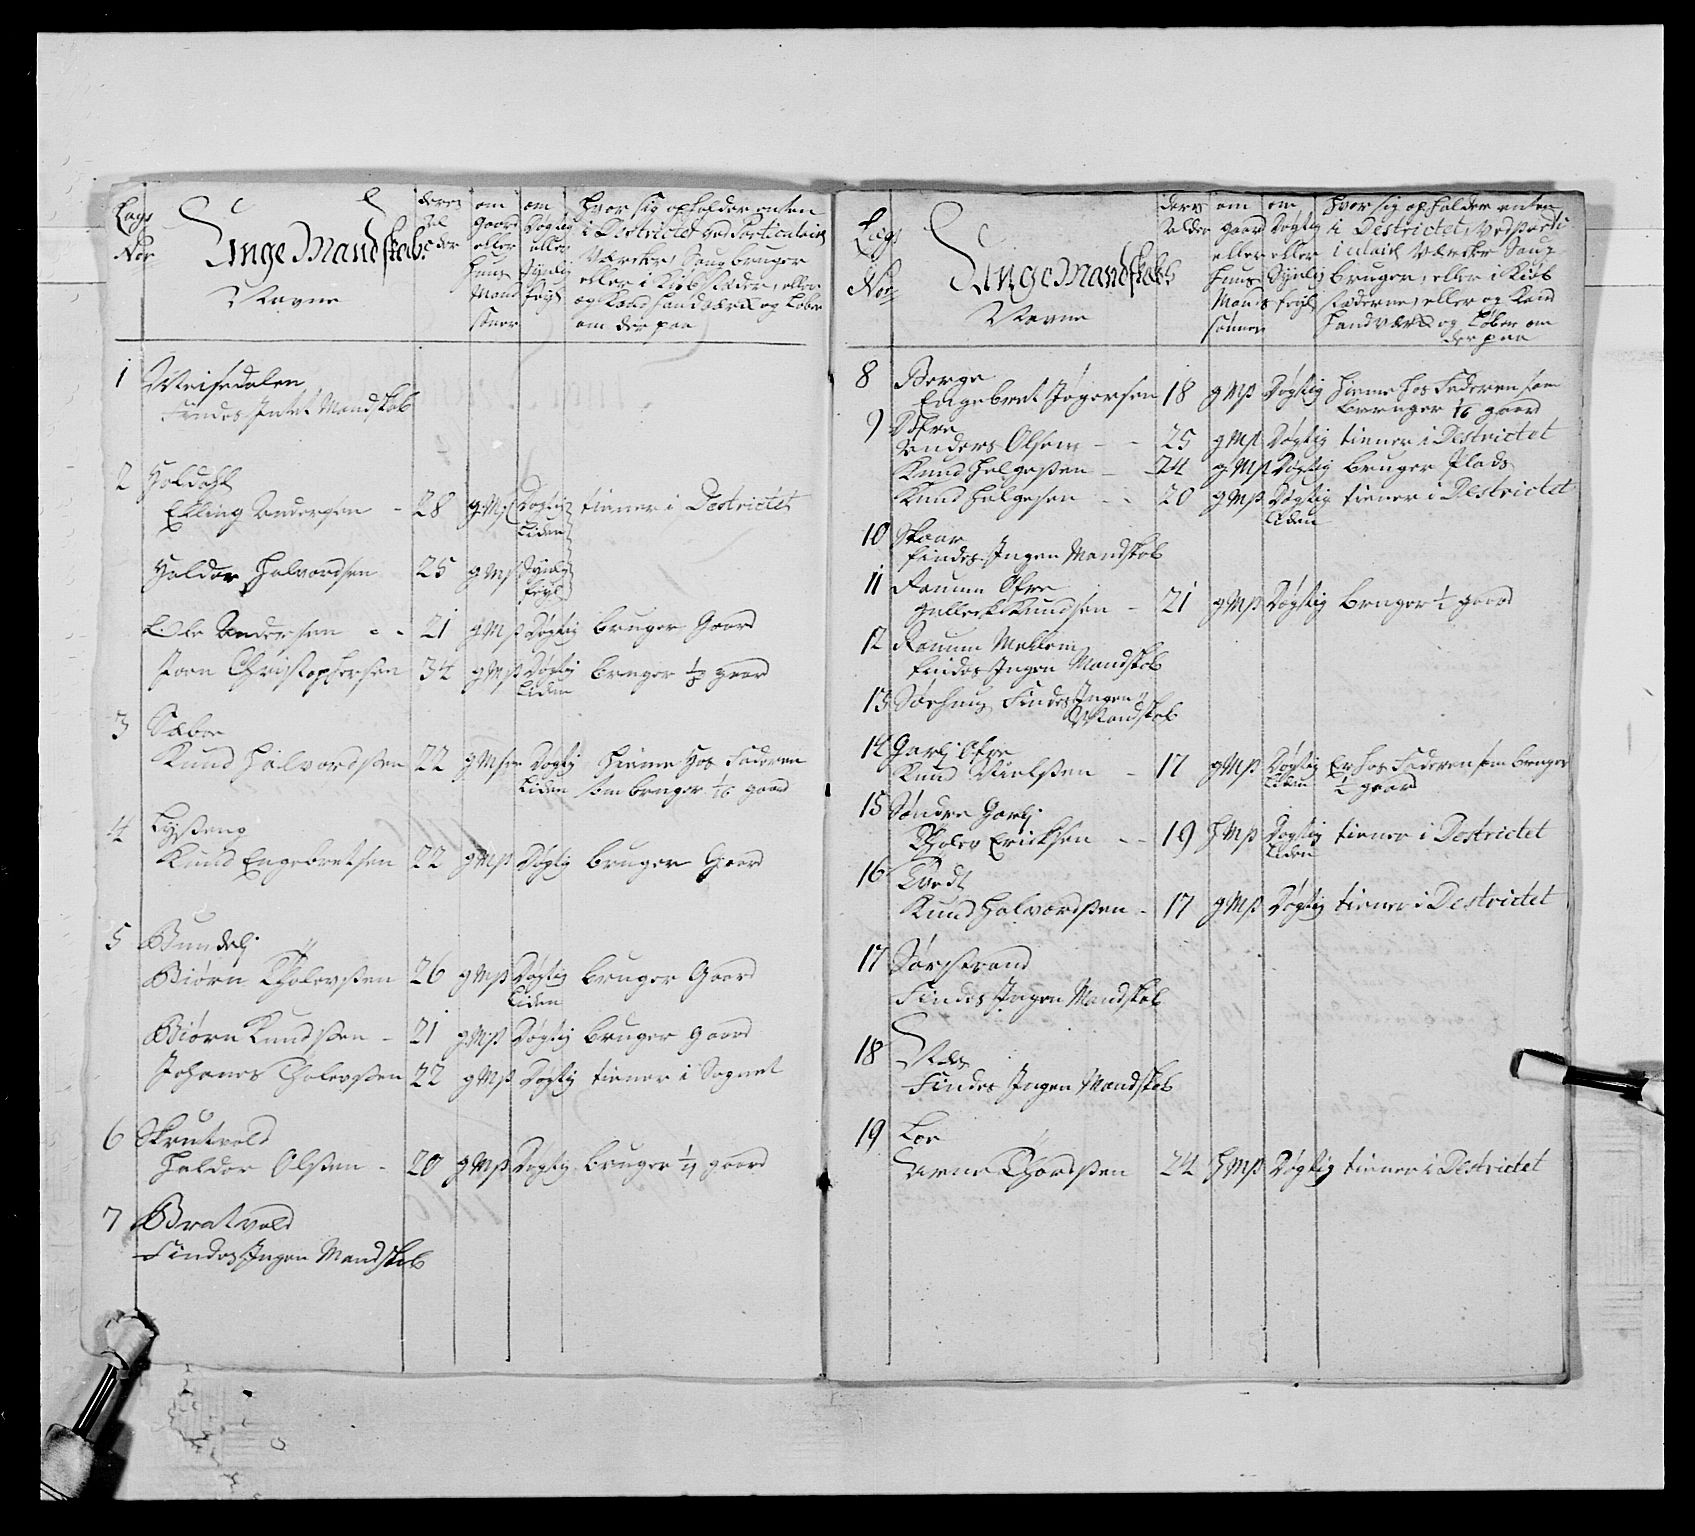 Lags
No
Unge Mandskabs
Navne
deres
Al
der
om
Gaard
eller
Huus
Mands
sønner
om
Døgtig
eller
Synlig
feigl
Hvor sig opholder enten
i Destrictet ved Particulair
Værcker, Saug bruger
eller i Kiøbstæder, eller
og Kand Handværck og Løber
om der paa
1 Meisedalen
Findes Intet Mandskab
2 Joldahl
Elling Andersen - 28 gMs Døgtig tiener i Destrictet
Liden
Haldor Halvordsen 25 gMs Synlig
feigl
Ole Andersen - - 21 gMs Døgtig bruger Gaard
Joen Christophersen 34 gMs Døgtig bruger 1/3 gaard
Liden
3 Sæboe
Knud Halvordsen 22 gMsn Døgtig Hieme Hos Faderen
Liden som bruger 1/6 gaard
4 Lysseng
Knud Engebretsen 22 gMs Døgtig bruger Gaard
5 Bundli
Biørn Tholevsen 26 gMs Døgtig bruger Gaard
Liden
Biørn Knudsen - 21 gMs Døgtig bruger gaard
Johanes Tholevsen 22 gMs Døgtig tiener i Sognet
6 Skrutvold
Haldor Olsen - 20 gMs Døgtig bruger 1/4 gaard
7 Bratvold
Findes Ingen Mandskab
Lags
No
Unge Mandskabs
Navne
deres
Alder
om
gaard
eller
huus
Mands
sønner
om
Døgtig
eller
Synlig
feigl
Hvor sig opholder enten
i Destrictet, ved Parti
culair Værcker Saug
bruger, eller i Kiøb
stæderne, eller og Kand
Handværck og Løber om
der paa
8 Berge
Engebret Jøgersen 18 gMs Døgtig Hieme hos Faderen som
beruger 1/6 gaard
9
Anders Olsen - - 25 gMs Døgtig tiener i Destrictet
Knud Helgesen - 24 gMs Døgtig bruger Plads
Knud Helgesen - - 20 gMs Døgtig tiener i Destrictet
Liden
10 Skaar
findes Ingen Mandskab
11 Raunm Øfre
Gulleck Knudsen - 21 gMs Døgtig bruger 1/4 gaard
12 Raunm Mellem
findes Ingen Mandskab
13 Findes Ingen
Mandskab
14 Garli Øfre
Knud Nielsen - 17 gMs Døgtig Er hos Faderen som bruger
Liden 1/2 gaard
15 Søndre Garli
Tholev Ericksen - - 19 HMs Døgtig tiener i Destrictet
Liden
16 Tvedt
Knud Halvordsen - 17 gMs Døgtig tiener i Destrictet
17 Sørstrand
Findes Ingen Mandskab
18 Næs
Findes Ingen Mandskab
19 Loe
Arne Thordsen 24 HMs Døgtig tiener i Destrictet